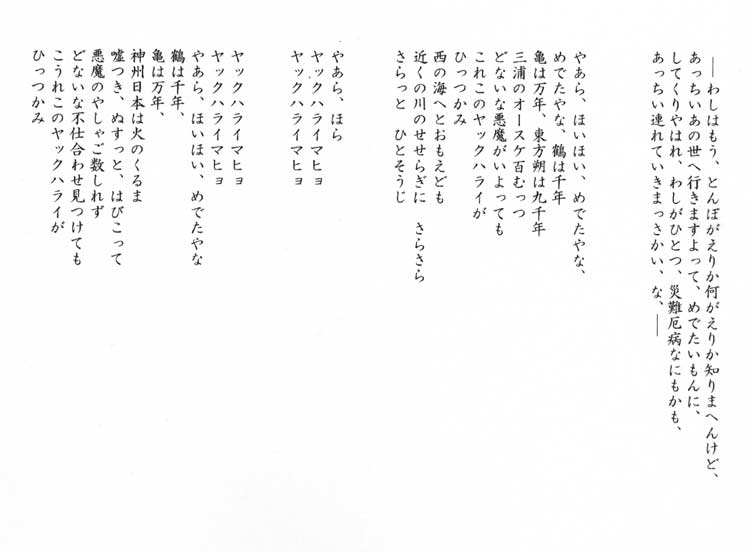 ――わしはもう、とんぼがえりか何がえりか知りまへんけど、
あっちいあの世へ行きますよって、めでたいもんに、
してくりやはれ、わしがひとつ、災難厄病なにもかも、
あっちい連れていきまっさかい、な、――
やあら、ほいほい、めでたやな、
めでたやな、鶴は千年
亀は万年、東方朔は九千年
三浦のオースケ百むっつ
どないな悪魔がいよっても
これこのヤックハライが
ひっつかみ
西の海へとおもえども
近くの川のせせらぎに　さらさら
さらっと　ひとそうじ
やあら、ほら
ヤックハライマヒョ
ヤックハライマヒョ
ヤックハライマヒョ
ヤックハライマヒョ
やあら、ほいほい、めでたやな
鶴は千年、
亀は万年、
神州日本は火のくるま
嘘つき、ぬすっと、はびこって
悪魔のやしゃご数しれず
どないな不仕合わせ見つけても
こうれこのヤックハライが
ひっつかみ